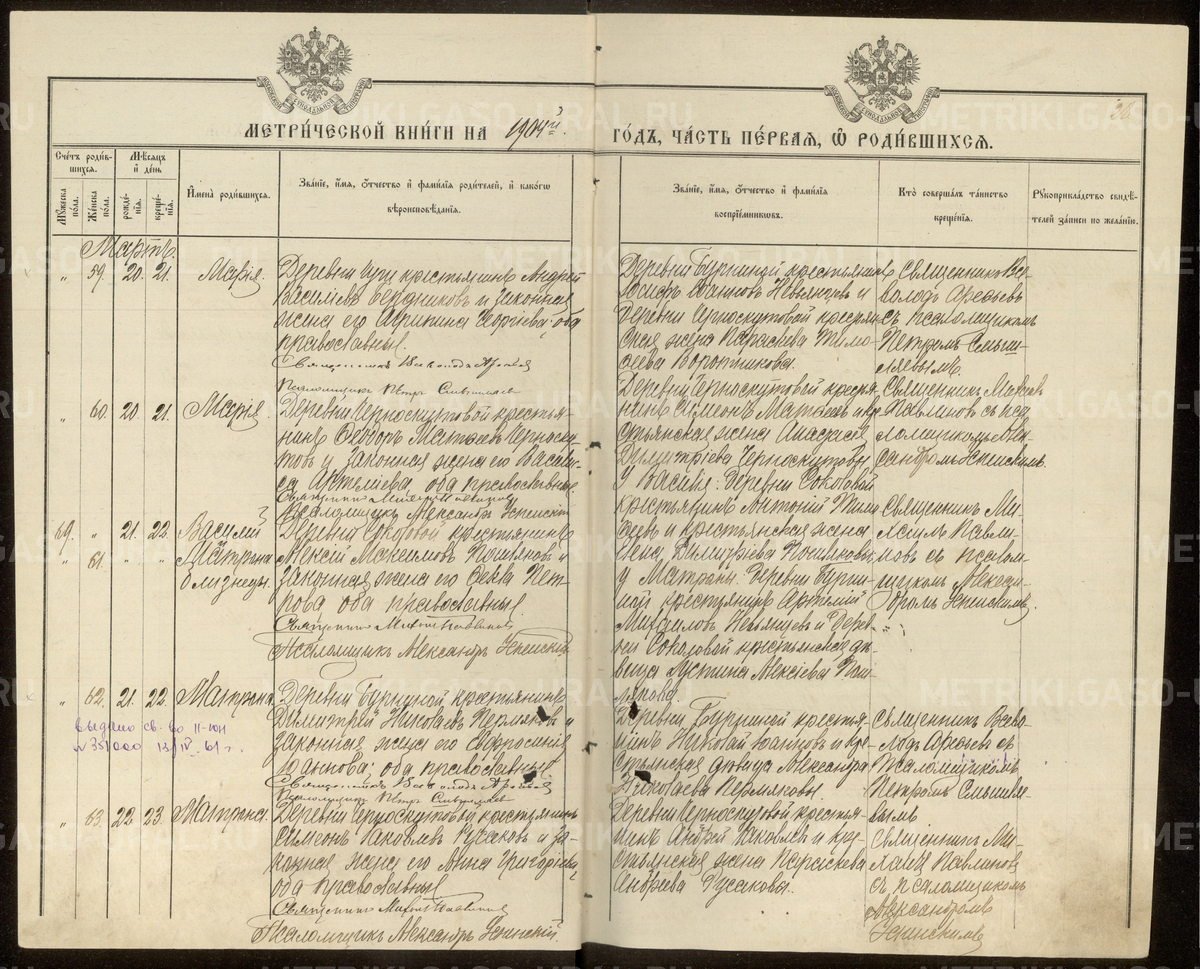 МЕТРИ́ЧЕСКОЙ КНИ́ГИ НА 1904й.
ГО́ДЪ, ЧА́СТЬ ПЕ́РВАЯ, Ѡ РОДИ́ВШИХСЯ.
36
Сче́тъ роди́в-
шихся.
Мꙋ́жеска по́ла.
Же́нска по́ла.
Мѣ́сяцъ
и҆ де́нь
рожде́нїя.
креще́нїя.
И҆мена̀ роди́вшихся.
Зва́нїе, и҆́мя, ѻ҆́тчество и҆ фамѝлїя роди́телей, и҆ како́гѡ
вѣроисповѣ́данїя.
Зва́нїе, и҆́мя, ѻ҆́тчество и҆ фамѝлїя
воспрїе́мникѡвъ.
Кто̀ соверша́лъ та́инство
креще́нїя.
Рꙋкоприкла́дство свидѣ́-
телей за́писи по жела́нїю.
Мартъ.
" 59. 20. 21. Марія.
крестьянинъ Андрей
Васильевъ Бердниковъ и законная
жена его Агрипина Георгіева оба
православные.
Священникъ Всеволодъ Арефьев
Псаломщикъ Петръ
крестьянинъ
Іосифъ Іоанновъ Невьянцевъ и
Деревни Черноскутовой крестьян-
ская жена Параскева Тимо-
феева
Священникъ Все-
володъ Арефьевъ
съ псаломщикомъ
Петромъ
" 60. 20 21. Марія.
Деревни Черноскутовой крестья-
нинъ Феодоръ Матвеевъ Черноску-
товъ и законная жена его Васили-
са Артемиева, оба православные.
Священникъ Михаилъ Павлиновъ
Псаломщикъ Александръ Успенский
Деревни Черноскутовой крестья-
нинъ Симеонъ Матвеевъ и кре-
стьянская жена Анастасія
Димитріева Черноскутовы
Священникъ Михаилъ
Павлиновъ съ пса-
ломщикомъ Алек-
сандромъ Успенскимъ.
69. " 21. 22. Василий
" 61. " " Матрона
близнецы.
Деревни Соколовой крестьянинъ
Алексій Максимовъ и
законная жена его Фекла Пет-
рова оба православные.
Священникъ Михаилъ Павлиновъ
Псаломщикъ Александръ Успенский
У Василья: Деревни Соколовой
крестьянинъ Антоній
и крестьянская жена
Димитріева
У Матроны: Деревни
крестьянинъ Артемій
Михайловъ Невьянцевъ и Дерев-
ни Соколовой крестьянская дѣ-
вица Іустина Алексіева
Священникъ Ми-
хаилъ Павли-
новъ съ псалом-
щикомъ Алексан-
дромъ Успенскимъ.
" 62. 21. 22. Матрона
выдано св. во II-ЮН
№ 351000 13/IV 61 г.
крестьянинъ
Димитрій Николаевъ Пермяковъ и
законная жена его Евфросинія
Іоаннова: оба православные
Священникъ Всеволодъ Арефьев
Псаломщикъ Петръ
крестья-
нинъ Николай Іоанновъ и кре-
стьянская дѣвица Александра
Николаева Пермяковы.
Священникъ Всево-
лодъ Арефьевъ съ
Псаломщикомъ
Петромъ
" 63. 22. 23. Матрона.
Деревни Черноскутовой крестьянинъ
Симеонъ Іаковлевъ Русаковъ и за-
конная жена его Анна Григорьева,
оба Православные
Священникъ Михаилъ Павлиновъ
Псаломщикъ Александръ Успенский.
Деревни Черноскутовой крестья-
нинъ Андрей Іаковлевъ и кре-
стьянская жена Параскева
Андреева Русаковы.
Священникъ Ми-
хаилъ Павлиновъ
съ псаломщикомъ
Александромъ
Успенскимъ
METRIKI.GASO-URAL.RU